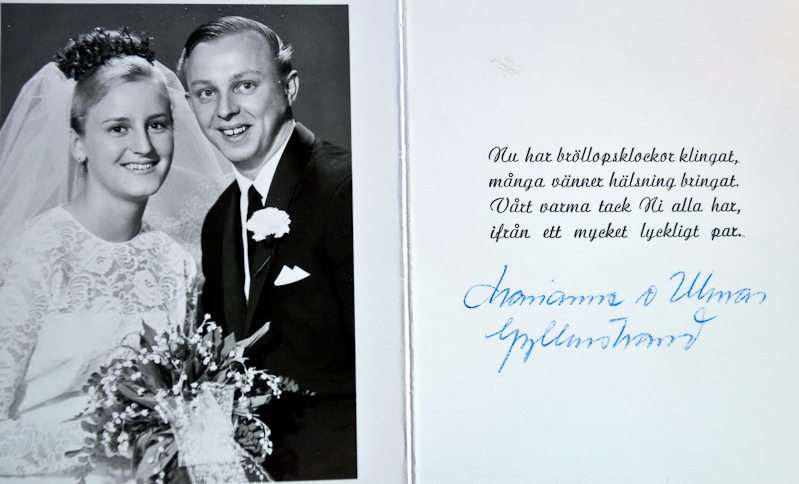 Nu har bröllopsklockor klingat,
många vänner hälsning bringat.
Vårt varma tack Ni alla har,
ifrån ett mycket lyckligt par.
Marianne o
Gyllenstrand